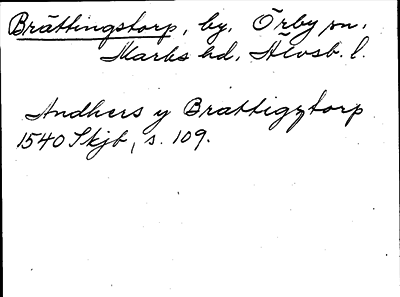 Brättingstorp, by, Örby sn,
Marks hd, Älvsb. l.
Andhers y Brattigztorp
1540 Skjb, s. 109.